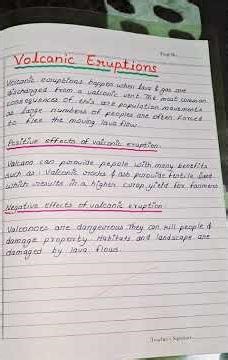 Page No.
Volcanic Eruptions
Volcanic eruptions happen when lava & gas are
discharged from a volcanic vent. The most common
consequences of this are population movements
as large numbers of peoples are often forced
to flee the moving lava flow.
Positive effects of volcanic eruption.
Volcano can pourvide pepole with many benefits
such as : Volcanic rocks & ash pourvide fertile land
which results in a higher curop yield for farmers
Negative effects of volcanic eruption
Volcanoes are dangerous they can kill people &
damage property. Habitats and landscape are
damaged by lava flows.
Teacher's Signature